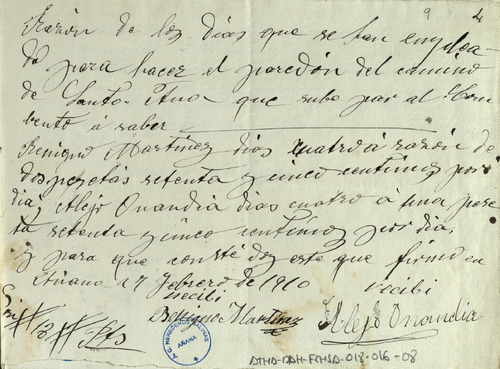 9 4
Razón de los dias que se han emplea
do para hacer el paredón del camino
de Santa Ana que sube par al Com
bento á saber
Benigno Martinez dias cuatro á razón de
dos pesetas setenta y cinco centimos por
dia; Alejo Onandia dias cuatro á una pese
ta setenta y cinco centimos por dia.
y para que conste doy este que firmo en
Añana a 7 Febrero de 1910
recibi recibi
Benigno Martinez Alejo Onandia
Son # 18 # Pts
AÑANA
DTHA-DAH-FCHSA-018-016-08